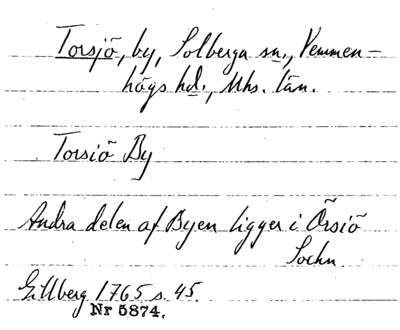 Torsjö, by, Solberga sn., Vemmen-
högs hd., Mhs. län.
Torsiö By
Andra delen af Byen ligger i Örsiö
Sochn.
Gillberg 1765 s. 45.
Nr 5874.